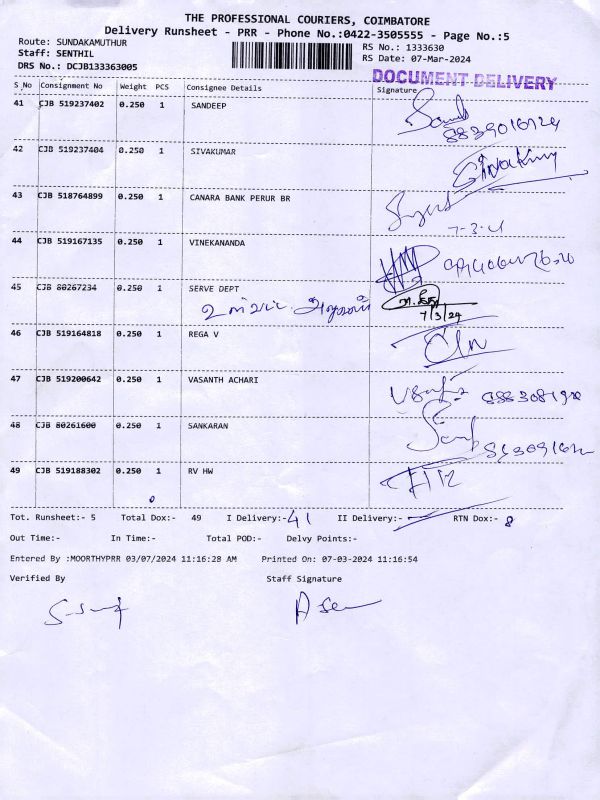 THE PROFESSIONAL COURIERS, COIMBATORE
Delivery Runsheet - PRR - Phone No.:0422-3505555 - Page No.:5
Route: SUNDAKAMUTHUR
RS No.: 1333630
Staff: SENTHIL
RS Date: 07-Mar-2024
DRS No.: DCJB133363005
DOCUMENT DELIVERY
S No Consignment No Weight PCS Consignee Details Signature
41 CJB 519237402 0.250 1 SANDEEP
42 CJB 519237404 0.250 1 SIVAKUMAR
43 CJB 518764899 0.250 1 CANARA BANK PERUR BR
7-3-
44 CJB 519167135 0.250 1 VINEKANANDA
45 CJB 80267234 0.250 1 SERVE DEPT
7/3/24
46 CJB 519164818 0.250 1 REGA V
47 CJB 519200642 0.250 1 VASANTH ACHARI
48 CJB 80261600 0.250 1 SANKARAN
49 CJB 519188302 0.250 1 RV HW
Tot. Runsheet:- 5 Total Dox:- 49 I Delivery:- 41 II Delivery:- RTN Dox:- 8
Out Time:- In Time:- Total POD:- Delvy Points:-
Entered By :MOORTHYPRR 03/07/2024 11:16:28 AM Printed On: 07-03-2024 11:16:54
Verified By Staff Signature